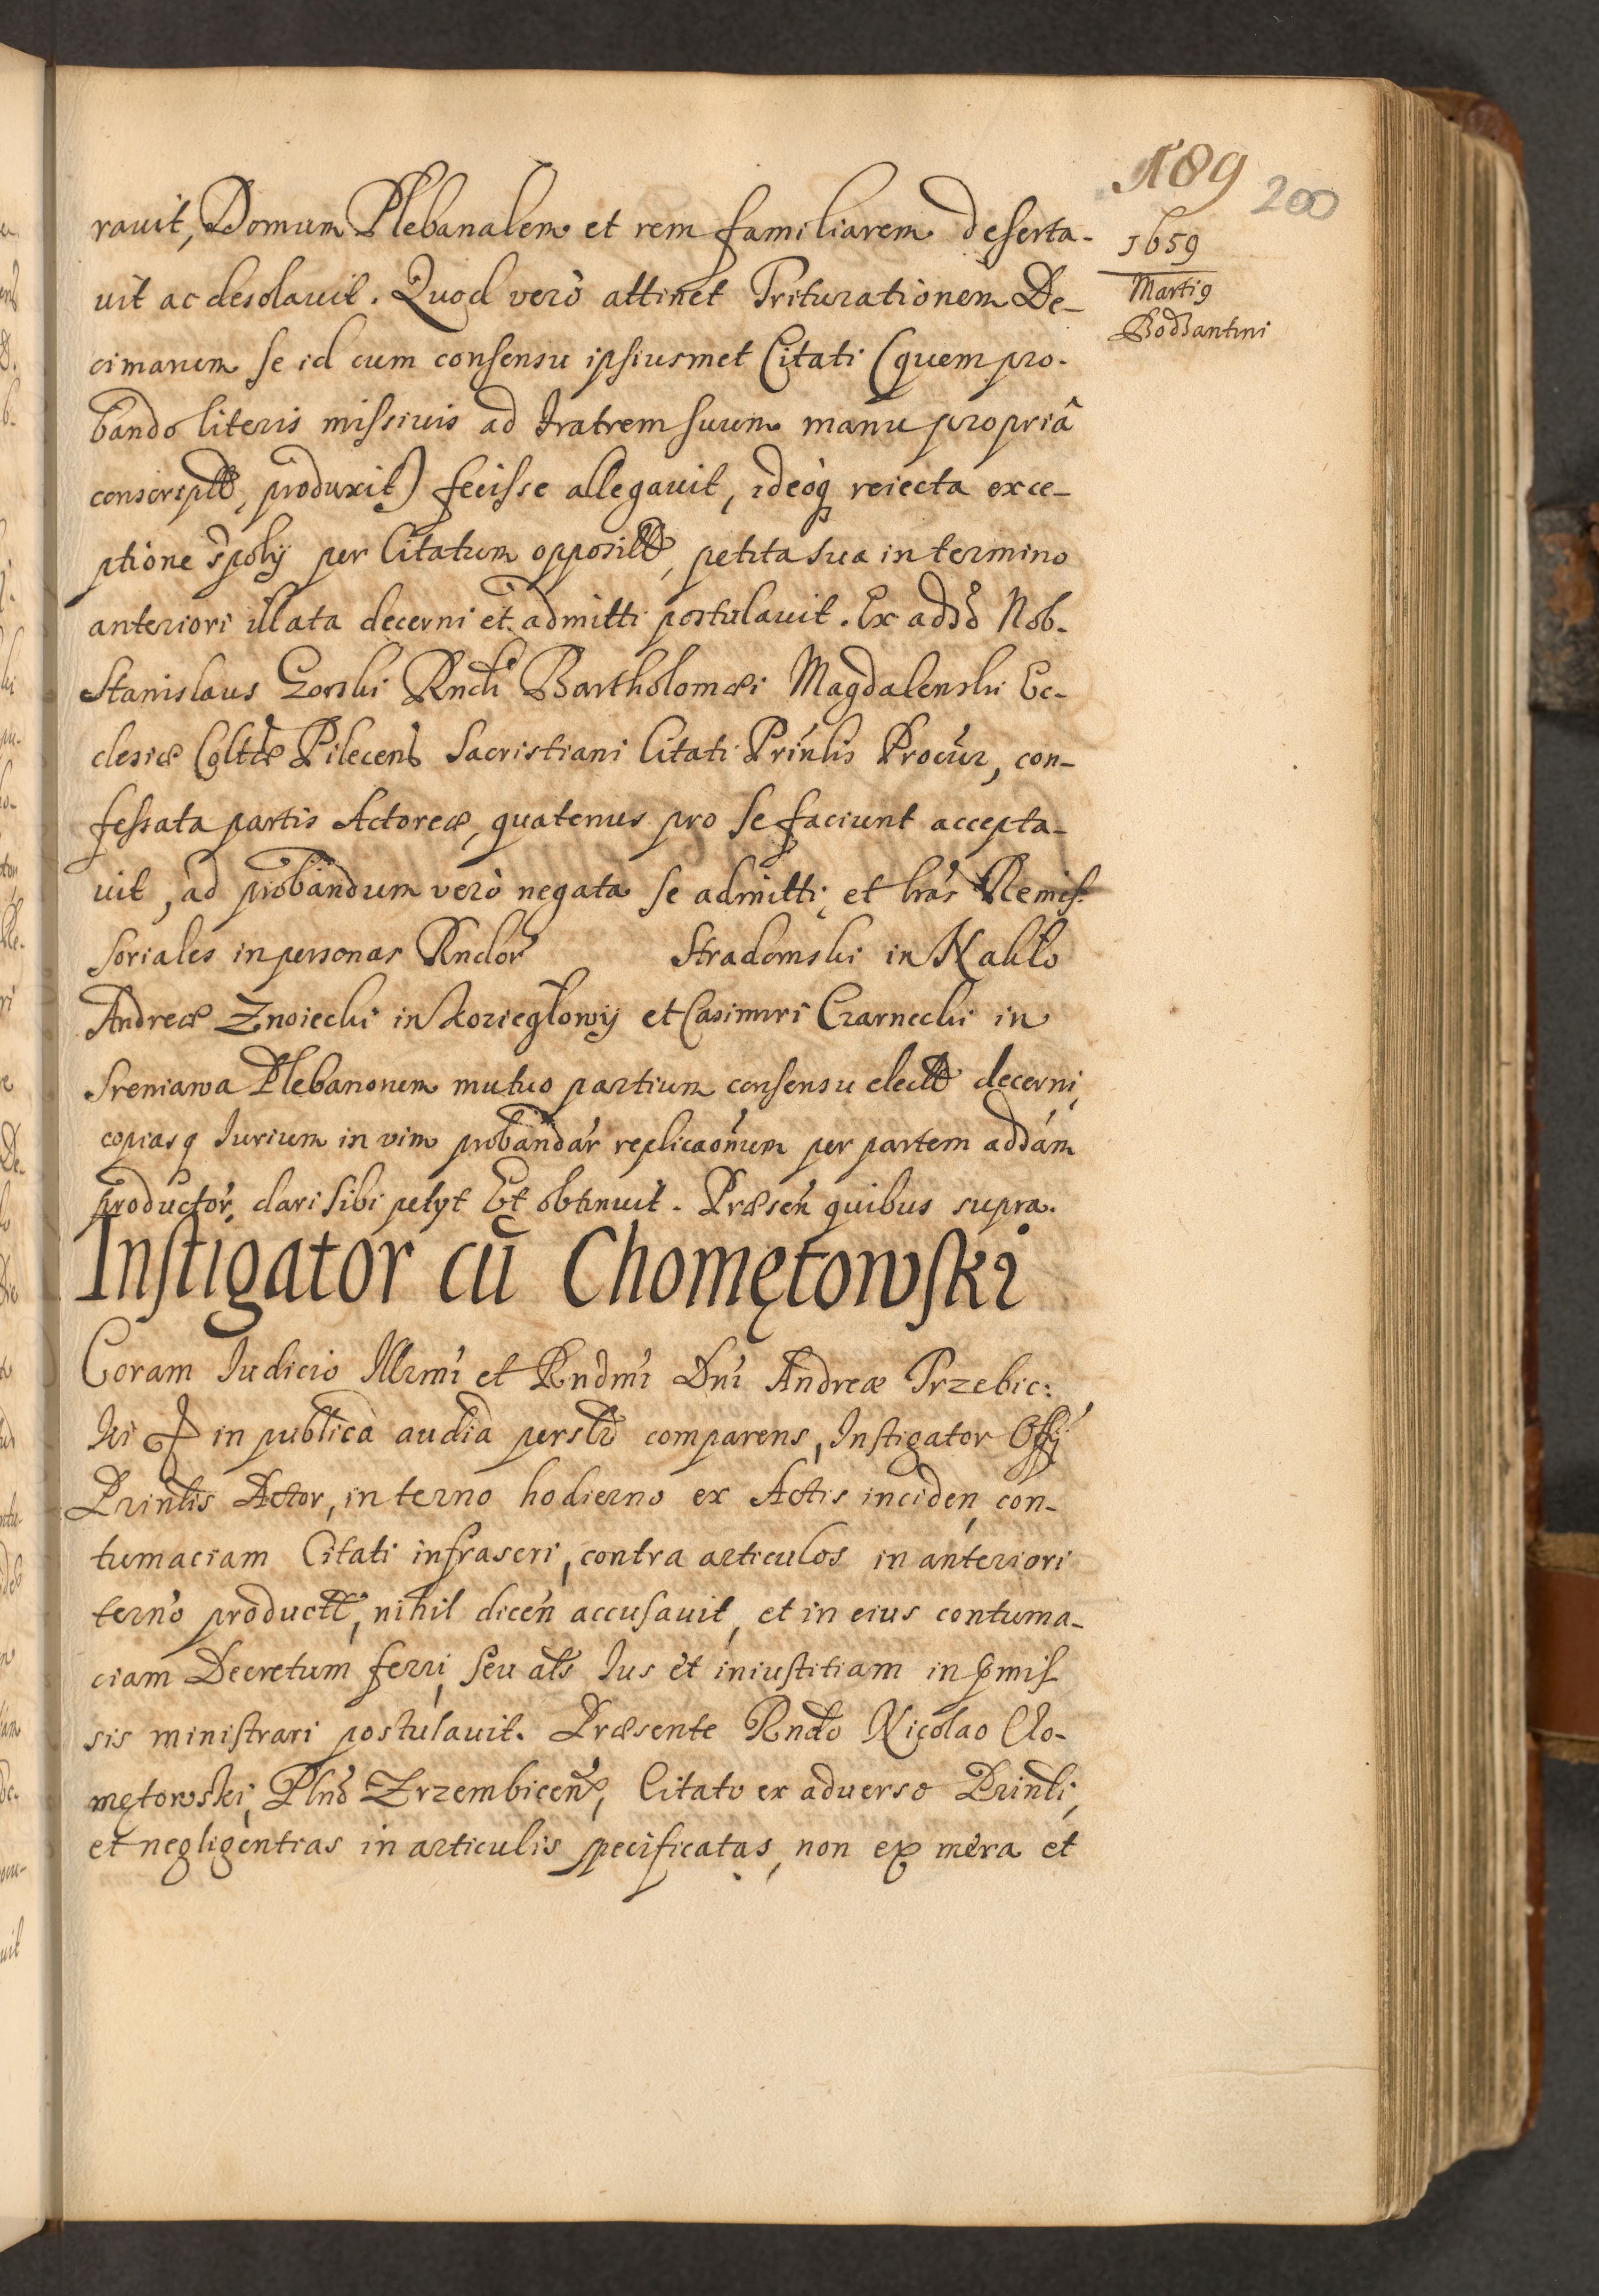 189 200
1659
Martij
Bodzantini
rauit, Domum Plebanalem et rem familiarem deserta-
uit ac desolauit. Quod verò attinet Triturationem De-
cimarum se id cum consensu ipsiusmet Citati (quem pro-
bando literis missiuis ad Fratrem suum manu propriâ
conscriptt, produxit) fecisse allegauit, ideoq reiecta exce-
ptione spolij per Citatum opposittæ, petita sua in termino
anteriori illata decerni et admitti postulauit. Ex adũo Nob.
Stanislaus Gorski Rndi Bartholomæi Magdalenski Ec-
clesiæ Coltæ Pilecens Sacristiani Citati Prinlis Procur, con-
fessata partis Actoreæ, quatenus pro se faciunt accepta-
uit, ad probandum verò negata se admitti, et lras Remis-
soriales in personas Rndor Stradomski in Nakło
Andreæ Znoiecki in Kozieglowÿ et Casimiri Czarnecki in
Sreniawa Plebanorum mutuo partium consensu electt decerni,
copiasq Iurium in vim probandar replicaõnum per partem adũam
productor, dari sibi petyt Et obtinuit. Præsen quibus supra.
Instigator cũ Chomętowski
Coram Iudicio Illrmi et Rndmi Dni Andreæ Trzebic:
ki &c in publica audia persltr comparens, Instigator Offÿ
Prinlis Actor, in terno hodierno ex Actis inciden, con-
tumaciam Citati infrascri, contra articulos in anteriori
terno productt, nihil dicen accusauit, et in eius contuma-
ciam Decretum ferri, seu als Ius et iniustitiam in pmis
sis ministrari postulauit. Præsente Rndo Nicolao Cho-
mętowski, Plno Zrzembicen, Citato ex aduerso Prinli,
et negligentias in articulis specificatas, non ex mera et